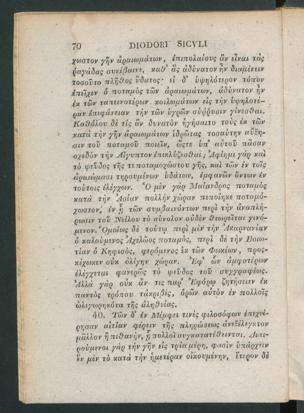 70 DIODORI SICVLI
χωστον γῆν ἀραιωμάτων, ἐπιπολαίους ἂν εἶναι τὰς
ῥαγάδας συνέβαινε, καθ' ἃς ἀδύνατον ἦν διαμένειν
τοσοῦτο πλῆθος ὕδατος· εἰ δ' ὑψηλότερον τόπον
ἐπεῖχεν ὁ ποταμὸς τῶν ἀραιωμάτων, ἀδύνατον ἦν
ἐκ τῶν ταπεινοτέρων κοιλωμάτων εἰς τὴν ὑψηλοτέ-
ραν ἐπιφάνειαν τὴν τῶν ὑγρῶν σύῤῥυσιν γίνεσθαι.
Καθόλου δὲ τίς ἂν δυνατὸν ἡγήσαιτο τοὺς ἐκ τῶν
κατὰ τὴν γῆν ἀραιωμάτων ἱδρῶτας τοσαύτην αὔξη-
σιν τοῦ ποταμοῦ ποιεῖν, ὥστε ὑπ' αὐτοῦ πᾶσαν
σχεδὸν τὴν Αἴγυπτον ἐπικλύζεσθαι; Ἀφίημι γὰρ καὶ
τὸ ψεῦδος τῆς τε ποταμοχώστου γῆς, καὶ τῶν ἐν τοῖς
ἀραιώμασι τηρουμένων ὑδάτων, ἐμφανῶν ὄντων ἐν
τούτοις ἐλέγχων. Ὁ μὲν γὰρ Μαίανδρος ποταμὸς
κατὰ τὴν Ἀσίαν πολλὴν χώραν πεποίηκε ποταμό-
χωστον, ἐν ᾗ τῶν συμβαινόντων περὶ τὴν ἀναπλή-
ρωσιν τοῦ Νείλου τὸ σύνολον οὐδὲν θεωρεῖται γινό-
μενον. Ὁμοίως δὲ τούτῳ περὶ μὲν τὴν Ἀκαρνανίαν
ὁ καλούμενος Ἀχελῶος ποταμὸς, περὶ δὲ τὴν Βοιω-
τίαν ὁ Κηφισὸς, φερόμενος ἐκ τῶν Φωκέων, προς-
κέχωκεν οὐκ ὀλίγην χώραν. Ἐφ' ὧν ἀμφοτέρων
ἐλέγχεται φανερῶς τὸ ψεῦδος τοῦ συγγραφέως.
Ἀλλὰ γὰρ οὐκ ἄν τις παρ' Ἐφόρῳ ζητήσειεν ἐκ
παντὸς τρόπου τἀκριβὲς, ὁρῶν αὐτὸν ἐν πολλοῖς
ὠλιγωρηκότα τῆς ἀληθείας.
40. Τῶν δ' ἐν Μέμφει τινὲς φιλοσόφων ἐπεχεί-
ρησαν αἰτίαν φέρειν τῆς πληρώσεως ἀνεξέλεγκτον
μᾶλλον ἢ πιθανὴν, ᾗ πολλοὶ συγκατατέθεινται. Διαι-
ρούμενοι γὰρ τὴν γῆν εἰς τρία μέρη, φασὶν ὑπάρχειν
ἓν μὲν τὸ κατὰ τὴν ἡμετέραν οἰκουμένην, ἕτερον δὲ